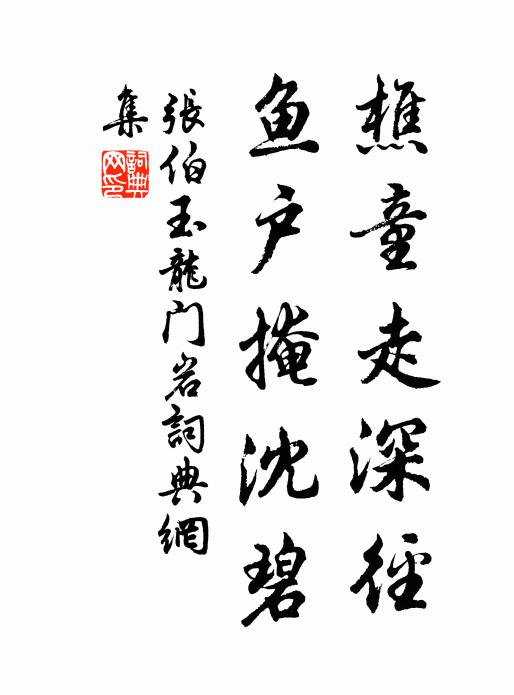 樵童走深径
鱼户掩沈碧
張伯玉龍门岩詞典網
集
詞典
网印